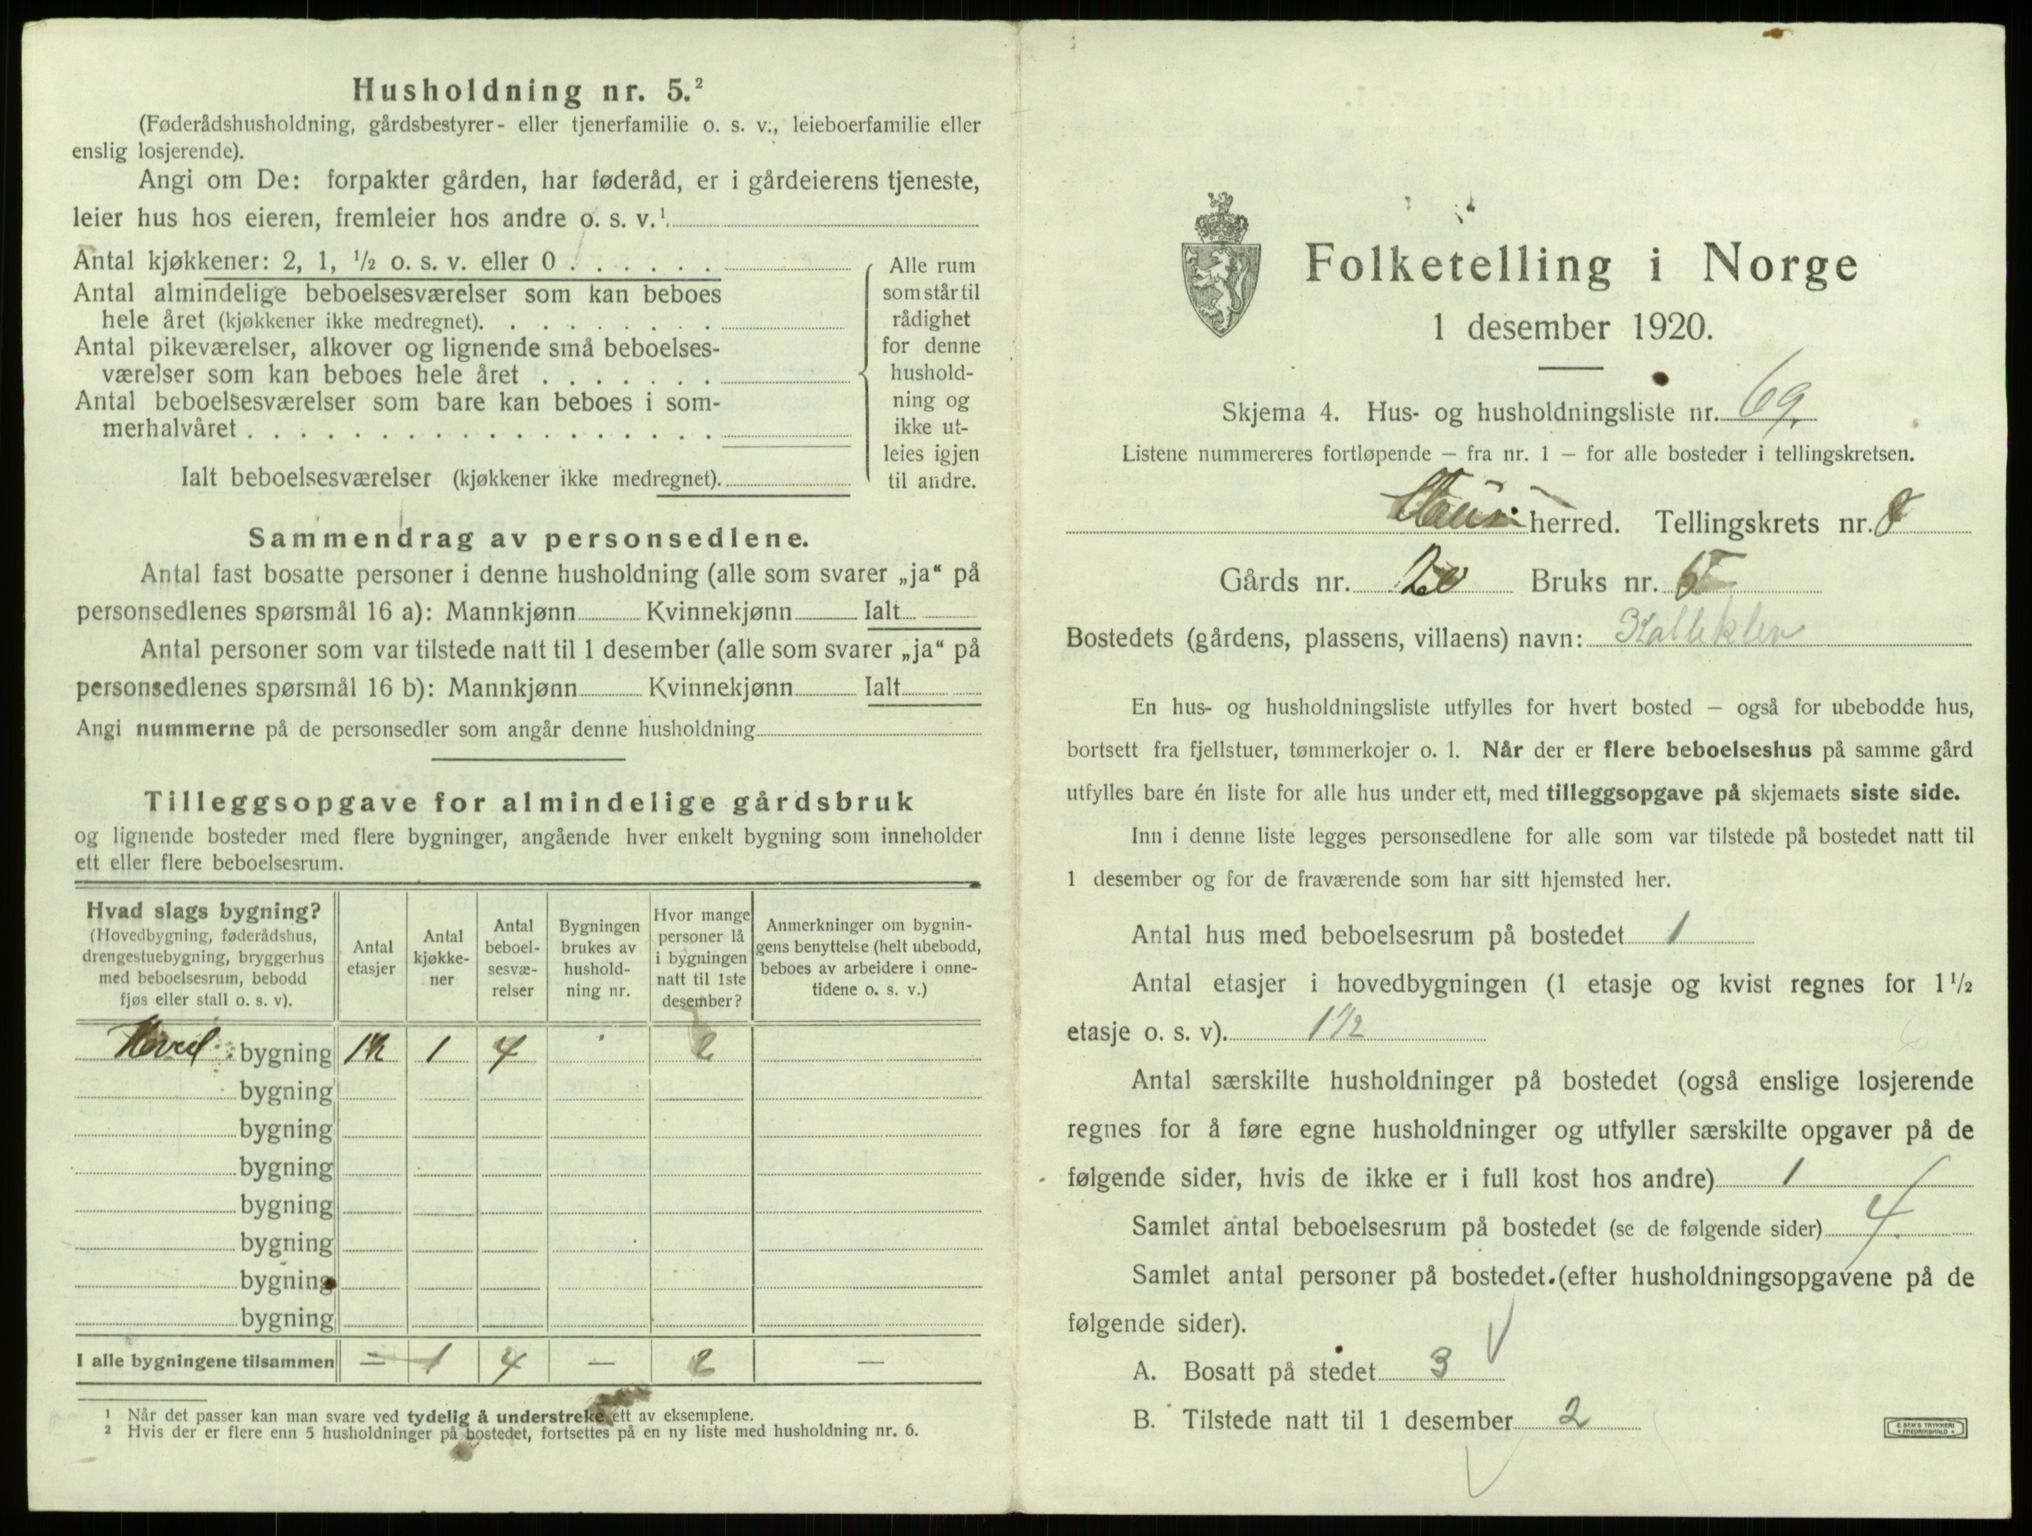 Husholdning nr. 5.²
(Føderådshusholdning, gårdsbestyrer- eller tjenerfamilie o. s. v., leieboerfamilie eller
enslig losjerende).
Angi om De: forpakter gården, har føderåd, er i gårdeierens tjeneste,
leier hus hos eieren, fremleier hos andre o. s. v.¹
Antal kjøkkener: 2, 1, ½ o. s. v. eller 0 . . . . . .
Antal almindelige beboelsesværelser som kan beboes
hele året (kjøkkener ikke medregnet). . . . . . . . .
Antal pikeværelser, alkover og lignende små beboelses-
værelser som kan beboes hele året . . . . . . .
Antal beboelsesværelser som bare kan beboes i som-
merhalvåret . . . . . . . . . . . . . . . . . .
Ialt beboelsesværelser (kjøkkener ikke medregnet).
Alle rum
som står til
rådighet
for denne
hushold-
ning og
ikke ut-
leies igjen
til andre.
Sammendrag av personsedlene.
Antal fast bosatte personer i denne husholdning (alle som svarer „ja“ på
personsedlenes spørsmål 16 a): Mannkjønn Kvinnekjønn Ialt
Antal personer som var tilstede natt til 1 desember (alle som svarer „ja“ på
personsedlenes spørsmål 16 b): Mannkjønn Kvinnekjønn Ialt
Angi nummerne på de personsedler som angår denne husholdning
Tilleggsopgave for almindelige gårdsbruk
og lignende bosteder med flere bygninger, angående hver enkelt bygning som inneholder
ett eller flere beboelsesrum.
Hvad slags bygning?
(Hovedbygning, føderådshus,
drengestuebygning, bryggerhus
med beboelsesrum, bebodd
fjøs eller stall o. s. v).
Antal
etasjer
Antal
kjøkke-
ner
Antal
beboel-
sesvæ-
relser
Bygningen
brukes av
hushold-
ning nr.
Hvor mange
personer lå
i bygningen
natt til 1ste
desember?
Anmerkninger om bygnin-
gens benyttelse (helt ubebodd,
beboes av arbeidere i onne-
tidene o. s. v.)
Hoved bygning 1½ 1 4 2
bygning
bygning
bygning
bygning
bygning
bygning
bygning
I alle bygningene tilsammen — 1 4 — 2 —
¹ Når det passer kan man svare ved tydelig å understreke ett av eksemplene.
² Hvis der er flere enn 5 husholdninger på bostedet, fortsettes på en ny liste med husholdning nr. 6.
Folketelling i Norge
1 desember 1920.
Skjema 4. Hus- og husholdningsliste nr. 69.
Listene nummereres fortløpende — fra nr. 1 — for alle bosteder i tellingskretsen.
herred. Tellingskrets nr.
Gårds nr. 20 Bruks nr.
Bostedets (gårdens, plassens, villaens) navn: Kalleklev
En hus- og husholdningsliste utfylles for hvert bosted — også for ubebodde hus,
bortsett fra fjellstuer, tømmerkojer o. l. Når der er flere beboelseshus på samme gård
utfylles bare én liste for alle hus under ett, med tilleggsopgave på skjemaets siste side.
Inn i denne liste legges personsedlene for alle som var tilstede på bostedet natt til
1 desember og for de fraværende som har sitt hjemsted her.
Antal hus med beboelsesrum på bostedet 1
Antal etasjer i hovedbygningen (1 etasje og kvist regnes for 1½
etasje o. s. v). 1½
Antal særskilte husholdninger på bostedet (også enslige losjerende
regnes for å føre egne husholdninger og utfyller særskilte opgaver på de
følgende sider, hvis de ikke er i full kost hos andre) 1
Samlet antal beboelsesrum på bostedet (se de følgende sider) 4
Samlet antal personer på bostedet (efter husholdningsopgavene på de
følgende sider).
A. Bosatt på stedet 3
B. Tilstede natt til 1 desember 2
E. SEM'S TRYKKERI
FREDRIKSHALD